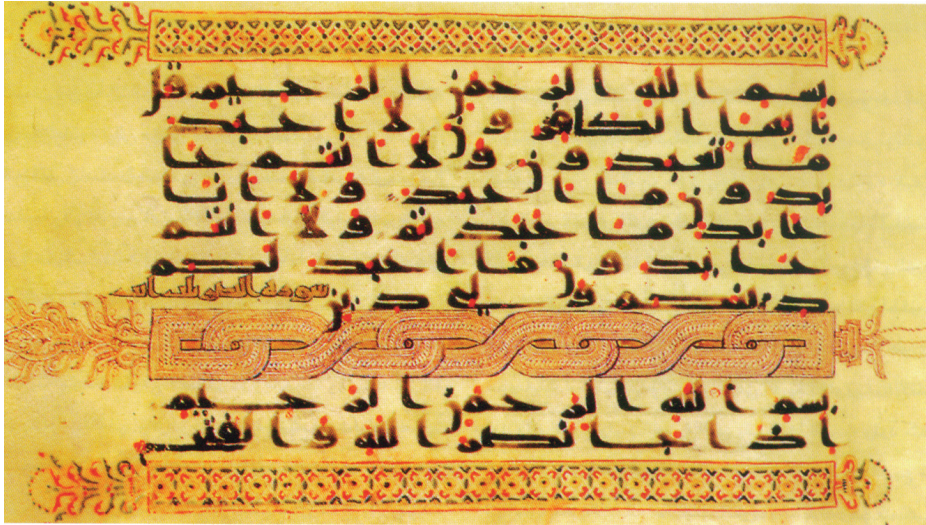 بسم الله الرحمن الرحيم قل
يايها الكفرون لا اعبد
ما تعبدون ولا انتم عا
بدون ما اعبد ولا انا
عابد ما عبدتم ولا انتم
عابدون ما اعبد لكم
دينكم ولي دين
سورة
بسم الله الرحمن الرحيم
اذا جا نصر الله والفتح